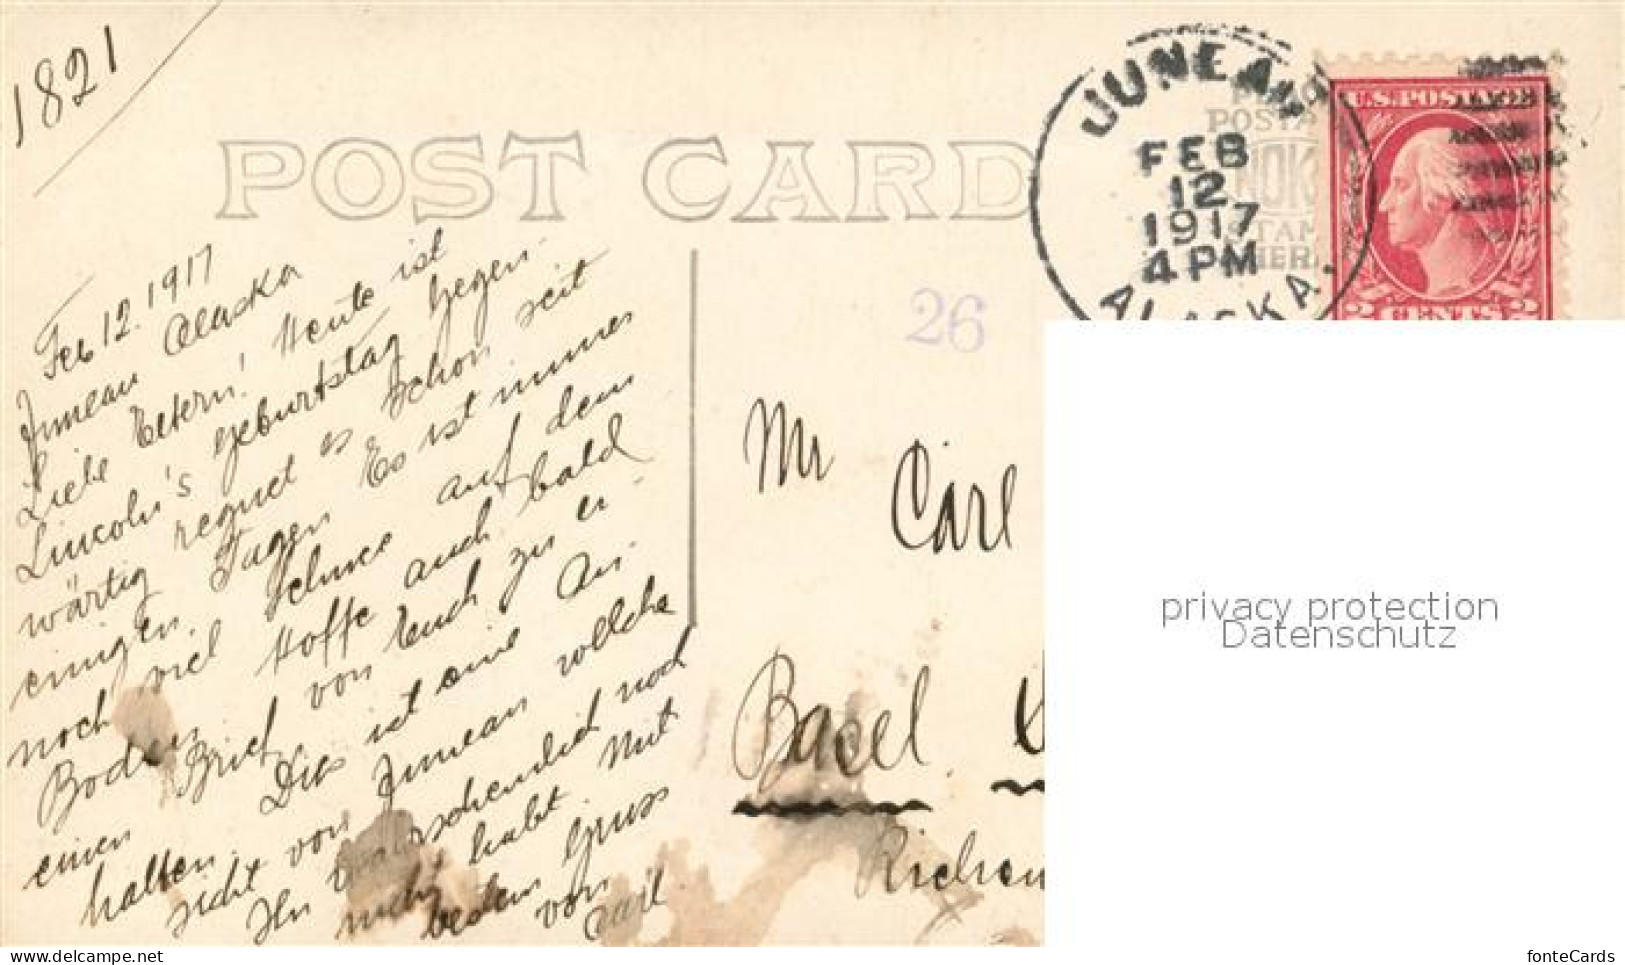 1821
POST CARD
JUNEAU
FEB
12
1917
4 PM
ALASKA.
U.S. POSTAGE
2 CENTS 2
26
Feb 12. 1917
Juneau Alaska
Liebe Eltern! Heute ist
Lincoln's Geburtstag. Gegen-
wärtig regnet es schon seit
einigen Tagen. Es ist immer
noch viel Schnee auf dem
Boden. Hoffe auch bald
einen Brief von Euch zu er-
halten. Dies ist eine An-
sicht von Juneau welche
Ihr wahrscheinlich noch
nicht habt. Mit
besten Gruss
von
Carl.
Mr
Carl
Basel
Riehen
privacy protection
Datenschutz
www.delcampe.net
fonteCards